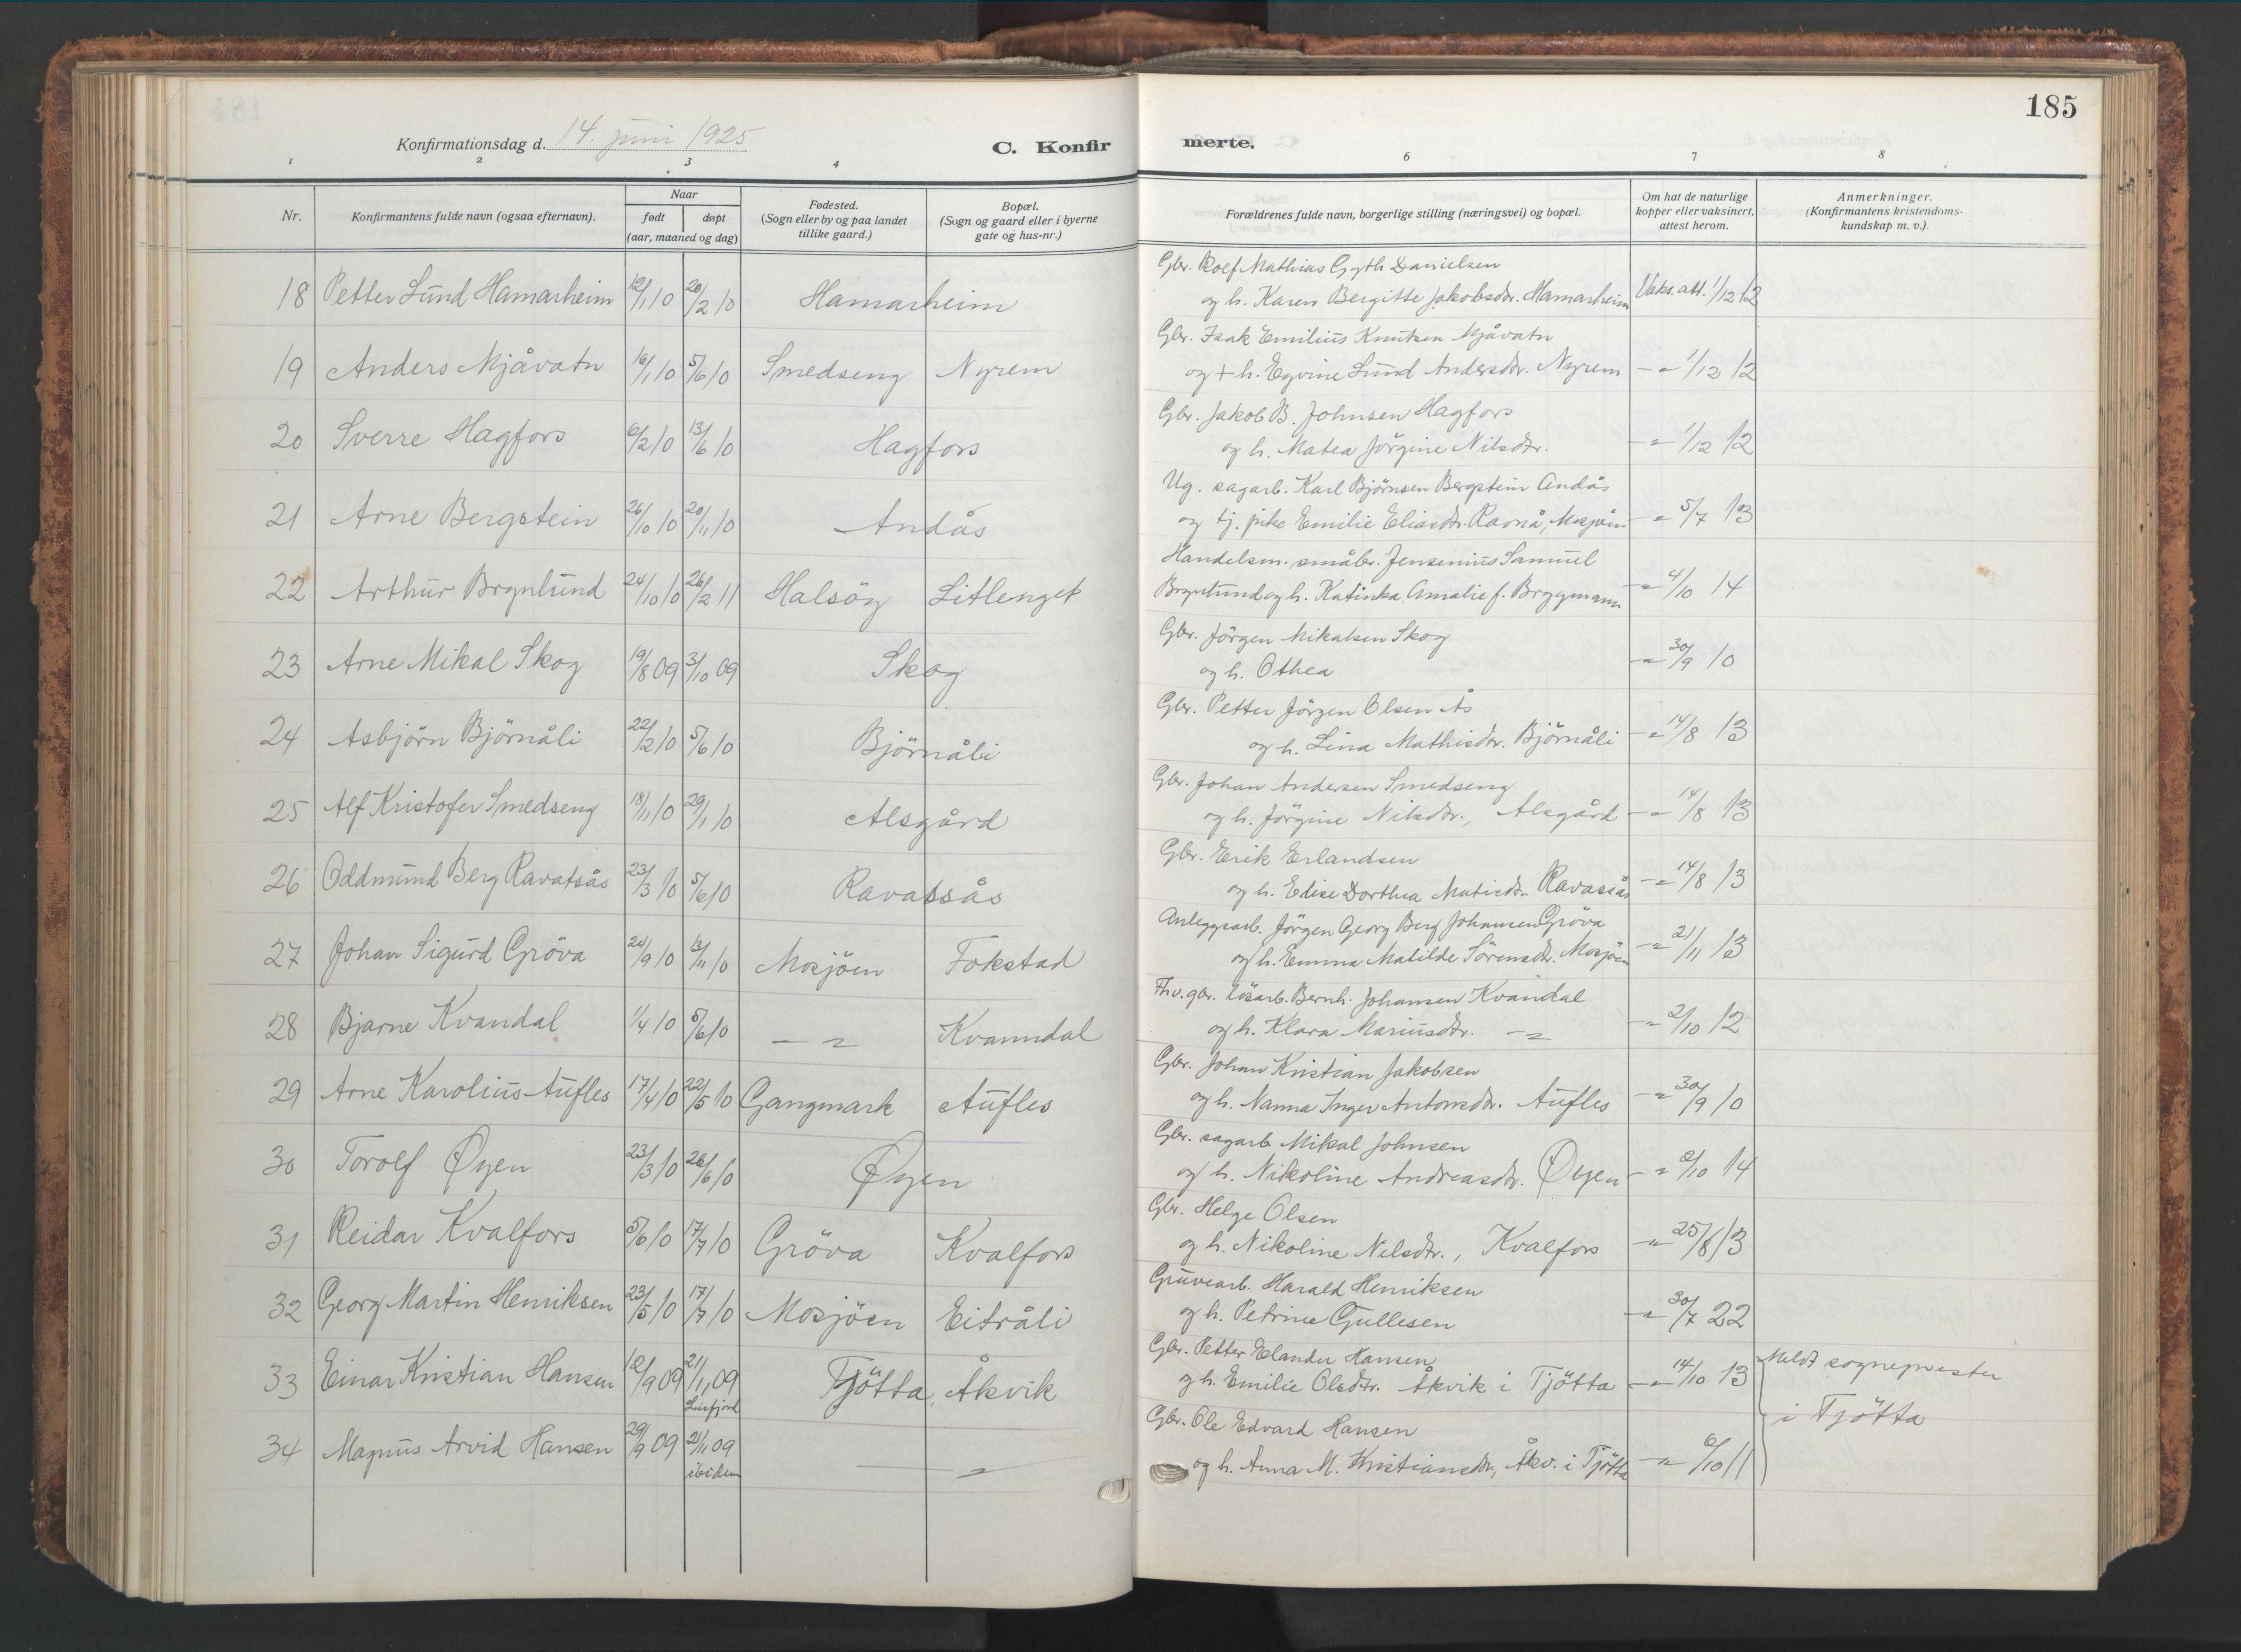 185
Konfirmationsdag d. 14. juni 1925
C. Konfirmerte.
1 2 3 4 6 7 8
Nr. Konfirmantens fulde navn (ogsaa efternavn). Naar født døpt (aar, maaned og dag) Fødested. (Sogn eller by og paa landet tillike gaard.) Bopæl. (Sogn og gaard eller i byerne gate og hus-nr.) Forældrenes fulde navn, borgerlige stilling (næringsvei) og bopæl. Om hat de naturlige kopper eller vaksinert, attest herom. Anmerkninger. (Konfirmantens kristendoms-kundskap m. v.).
Gbr. Rolf Mathias Gyth Danielsen
18 Petter Lund Hamarheim 12/1 10 20/2 10 Hamarheim og h. Karen Bergitte Jakobsdr. Hamarheim Vaks. att. 1/12 12
Gbr. Isak Emilius Knutsen Mjåvatn
19 Anders Mjåvatn 16/1 10 5/6 10 Smedseng Nyrem og + h. Eyvine Lund Andersdr. Nyrem - " 1/12 12
Gbr. Jakob B. Johnsen Hagfors
20 Sverre Hagfors 6/2 10 13/6 10 Hagfors og h. Matea Jörgine Nilsdtr. - " 1/12 12
Ug. sagarb. Karl Björnsen Bergstein Andås
21 Arne Bergstein 26/10 10 20/11 10 Andås og tj. pike Emilie Eliasdtr. Ravnå, Mosjöen - " 5/7 13
Handelsm. småbr. Jensenius Samuel
22 Arthur Brynlund 24/10 10 26/2 11 Halsöy Litlenget Brynlund og h. Katinka Amalie f. Bryggmann - " 4/10 14
Gbr. Jörgen Mikalsen Skog
23 Arne Mikal Skog 19/8 09 3/10 09 Skog og h. Othea - " 30/9 10
Gbr. Petter Jörgen Olsen Ås
24 Asbjörn Björnåli 22/2 10 5/6 10 Björnåli og h. Lina Mathisdtr. Björnåli - " 14/8 13
Gbr. Johan Andersen Smedseng
25 Alf Kristofer Smedseng 18/11 10 29/1 10 Alsgård og h. Jörgine Nilsdtr., Alsgård - " 14/8 13
Gbr. Erik Erlandsen
26 Oddmund Berg Ravatsås 23/3 10 5/6 10 Ravassås og h. Edise Dorthea Ravassås - " 14/8 13
Anleggsarb. Jörgen Georg Berg Johansen Gröva
27 Johan Sigurd Gröva 24/9 10 13/11 10 Mosjöen Fokstad og h. Emma Matilde Sörensdtr. Mosjöen - " 21/11 13
Fhv. gbr. lösarb. Bernh. Johansen Kvandal
28 Bjarne Kvandal 1/4 10 5/6 10 - " Kvanndal og h. Klara Mariusdtr. - " - " 2/10 12
Gbr. Johan Kristian Jakobsen
29 Arne Karolius Aufles 17/4 10 22/5 10 Gangmark Aufles og h. Nanna Inger Antonsdtr. Aufles - " 30/9 10
Gbr. sagarb Mikal Johnsen
30 Torolf Øyen 23/3 10 26/6 10 Øyen og h. Nikoline Andreasdtr. Øyen - " 2/10 14
Gbr. Helge Olsen
31 Reidar Kvalfors 5/6 10 17/7 10 Gröva Kvalfors og h. Nikoline Nilsdtr., Kvalfors - " 25/8 13
Gruvearb. Harald Henriksen
32 Georg Martin Henriksen 23/5 10 17/7 10 Mosjöen Eitråli og h. Petrine Gullesen - " 30/7 22
Gbr. Petter Elander Hansen
33 Einar Kristian Hansen 12/9 09 21/11 09 Tjötta, Åkvik og h. Emilie Olsdtr. Åkvik i Tjötta - " 14/10 13 Meldt sogneprester
i Tjötta
Gbr. Ole Edvard Hansen
34 Magnus Arvid Hansen 29/9 09 21/11 09 ibidem - " og h. Anna M. Kristiansdtr., Åkv. i Tjötta - " 6/10 11